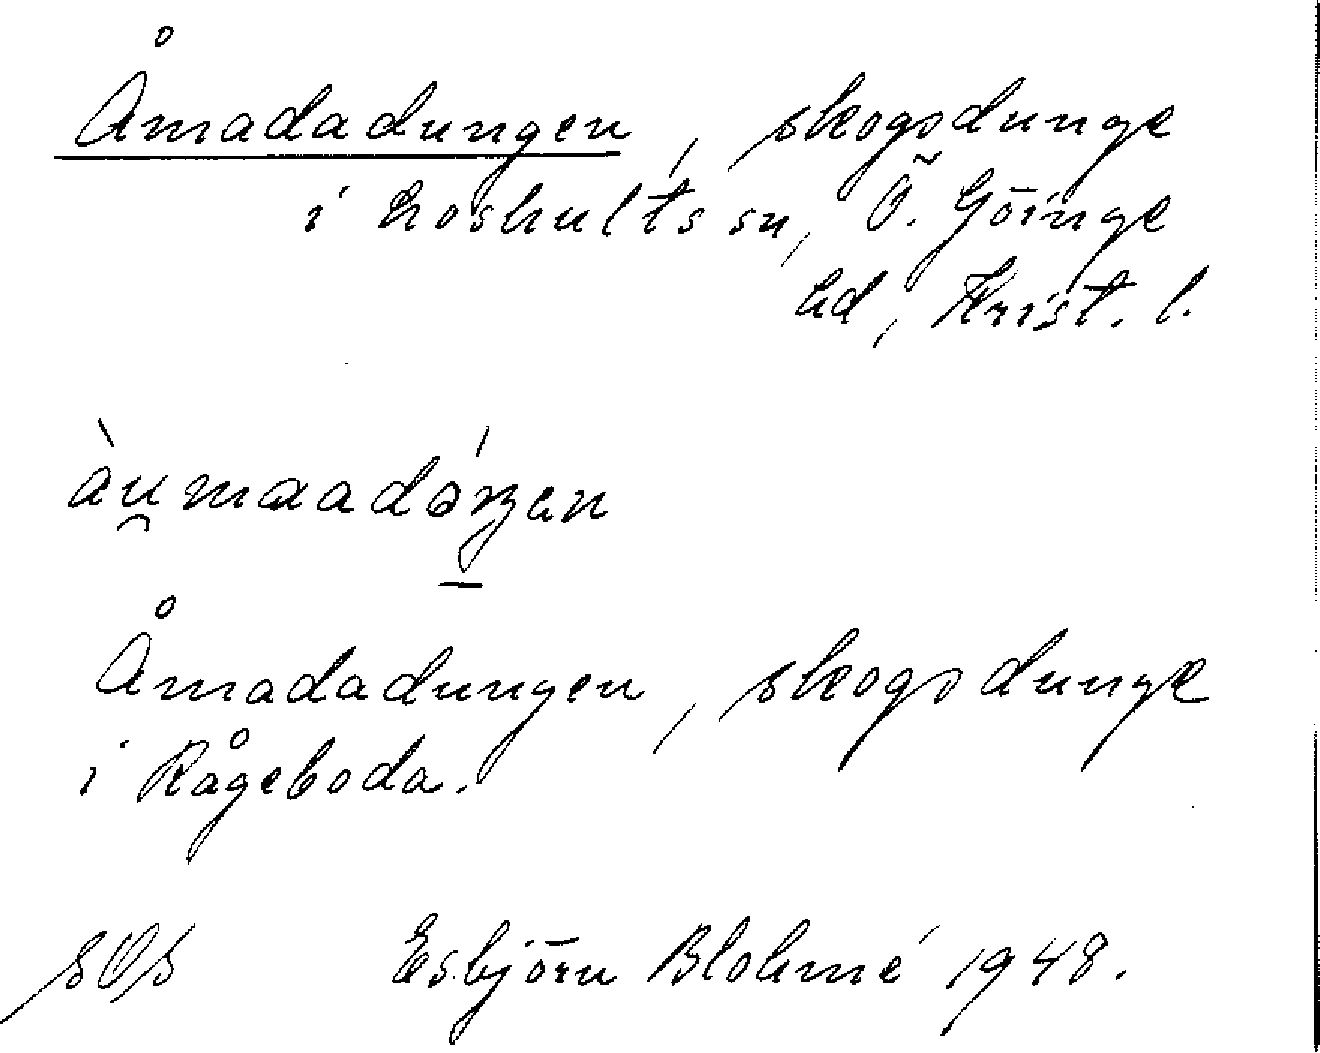 Åmadadungen, skogsdunge
i Loshults sn, Ö. Göinge
hd, Krist. l.
Åmadadungen, skogsdunge
i Rågeboda.
Esbjörn Blohmé 1948.